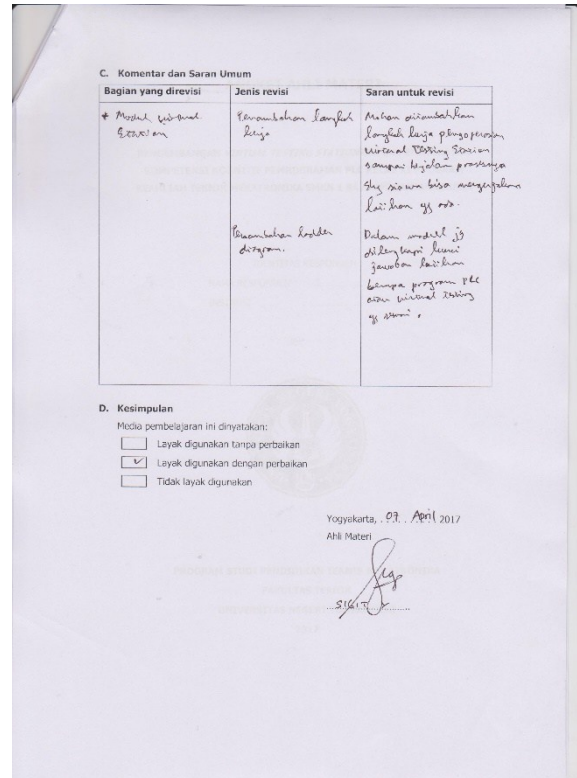 C. Komentar dan Saran Umum
Bagian yang direvisi Jenis revisi Saran untuk revisi
* Modul virtual Penambahan langkah Mohon ditambahkan
Station kerja langkah kerja pengoperasian
virtual Testing Station
sampai berjalan prosesnya
shg siswa bisa mengerjakan
latihan yg ada.
Penambahan ladder Dalam modul jg
diagram. dilengkapi kunci
jawaban latihan
berupa program PLC
atau virtual testing
yg
D. Kesimpulan
Media pembelajaran ini dinyatakan:
Layak digunakan tanpa perbaikan
✓ Layak digunakan dengan perbaikan
Tidak layak digunakan
Yogyakarta, 07 April 2017
Ahli Materi
SIGIT